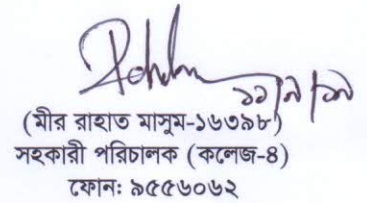 ১১/৯/১৯
(মীর রাহাত মাসুম-১৬৩৯৮)
সহকারী পরিচালক (কলেজ-৪)
ফোনঃ ৯৫৫৬০৬২